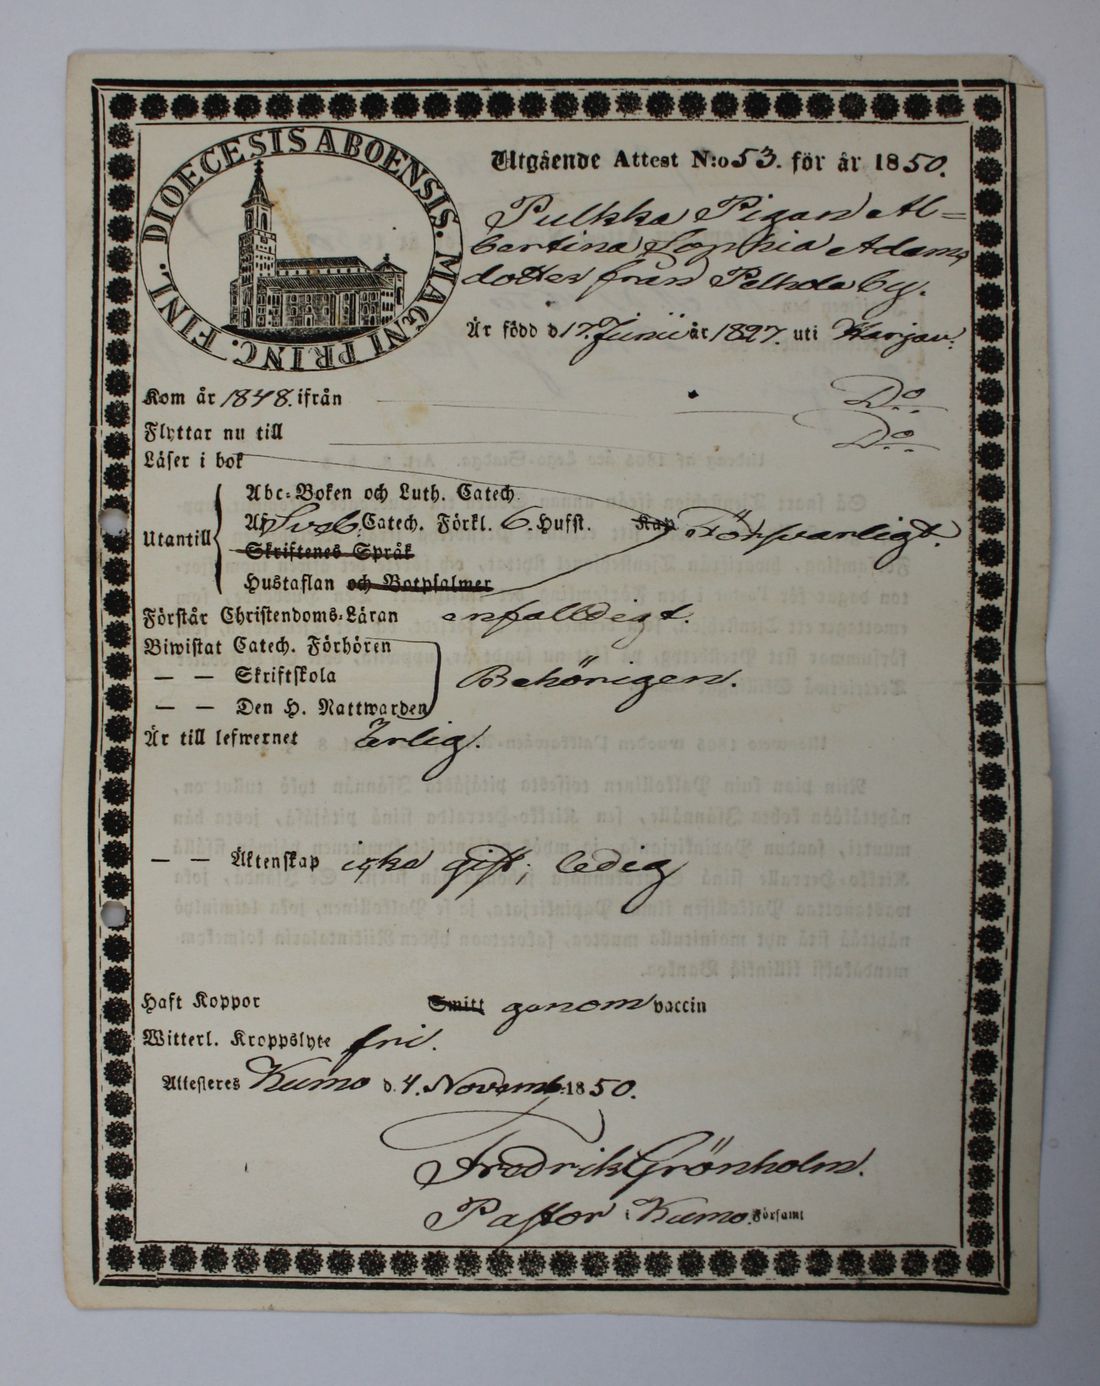 DIOECESIS ABOENSIS. MAGNI PRINC. FINL.
Utgående Attest N:o 53. för år 1850.
Pulkka Pigan Al=
bertina Sophia Adams
dotter från by.
Är född d 17. Junii år 1827. uti Karjau:
Kom år 1848. ifrån Do
Flyttar nu till Do
Läser i bok
Abc-Boken och Luth. Catech.
Utantill Af Sveb. Catech. Förkl. 6. Hufst. Kap Försvarligt.
Skriftenes Språk
Hustaflan och Botpsalmer
Förstår Christendoms-Läran enfalldigt.
Biwistat Catech. Förhören
— — Skriftskola Behörigen.
— — Den H. Nattwarden
Är till lefwernet Ärlig.
— — Äktenskap icke gift, ledig
Haft Koppor Smitt genom vaccin
Witterl. Kroppslyte fri.
Attesteres Kumo d. 4. Novemb. 1850.
Fredrik Grönholm.
Pastor i Kumo Församl